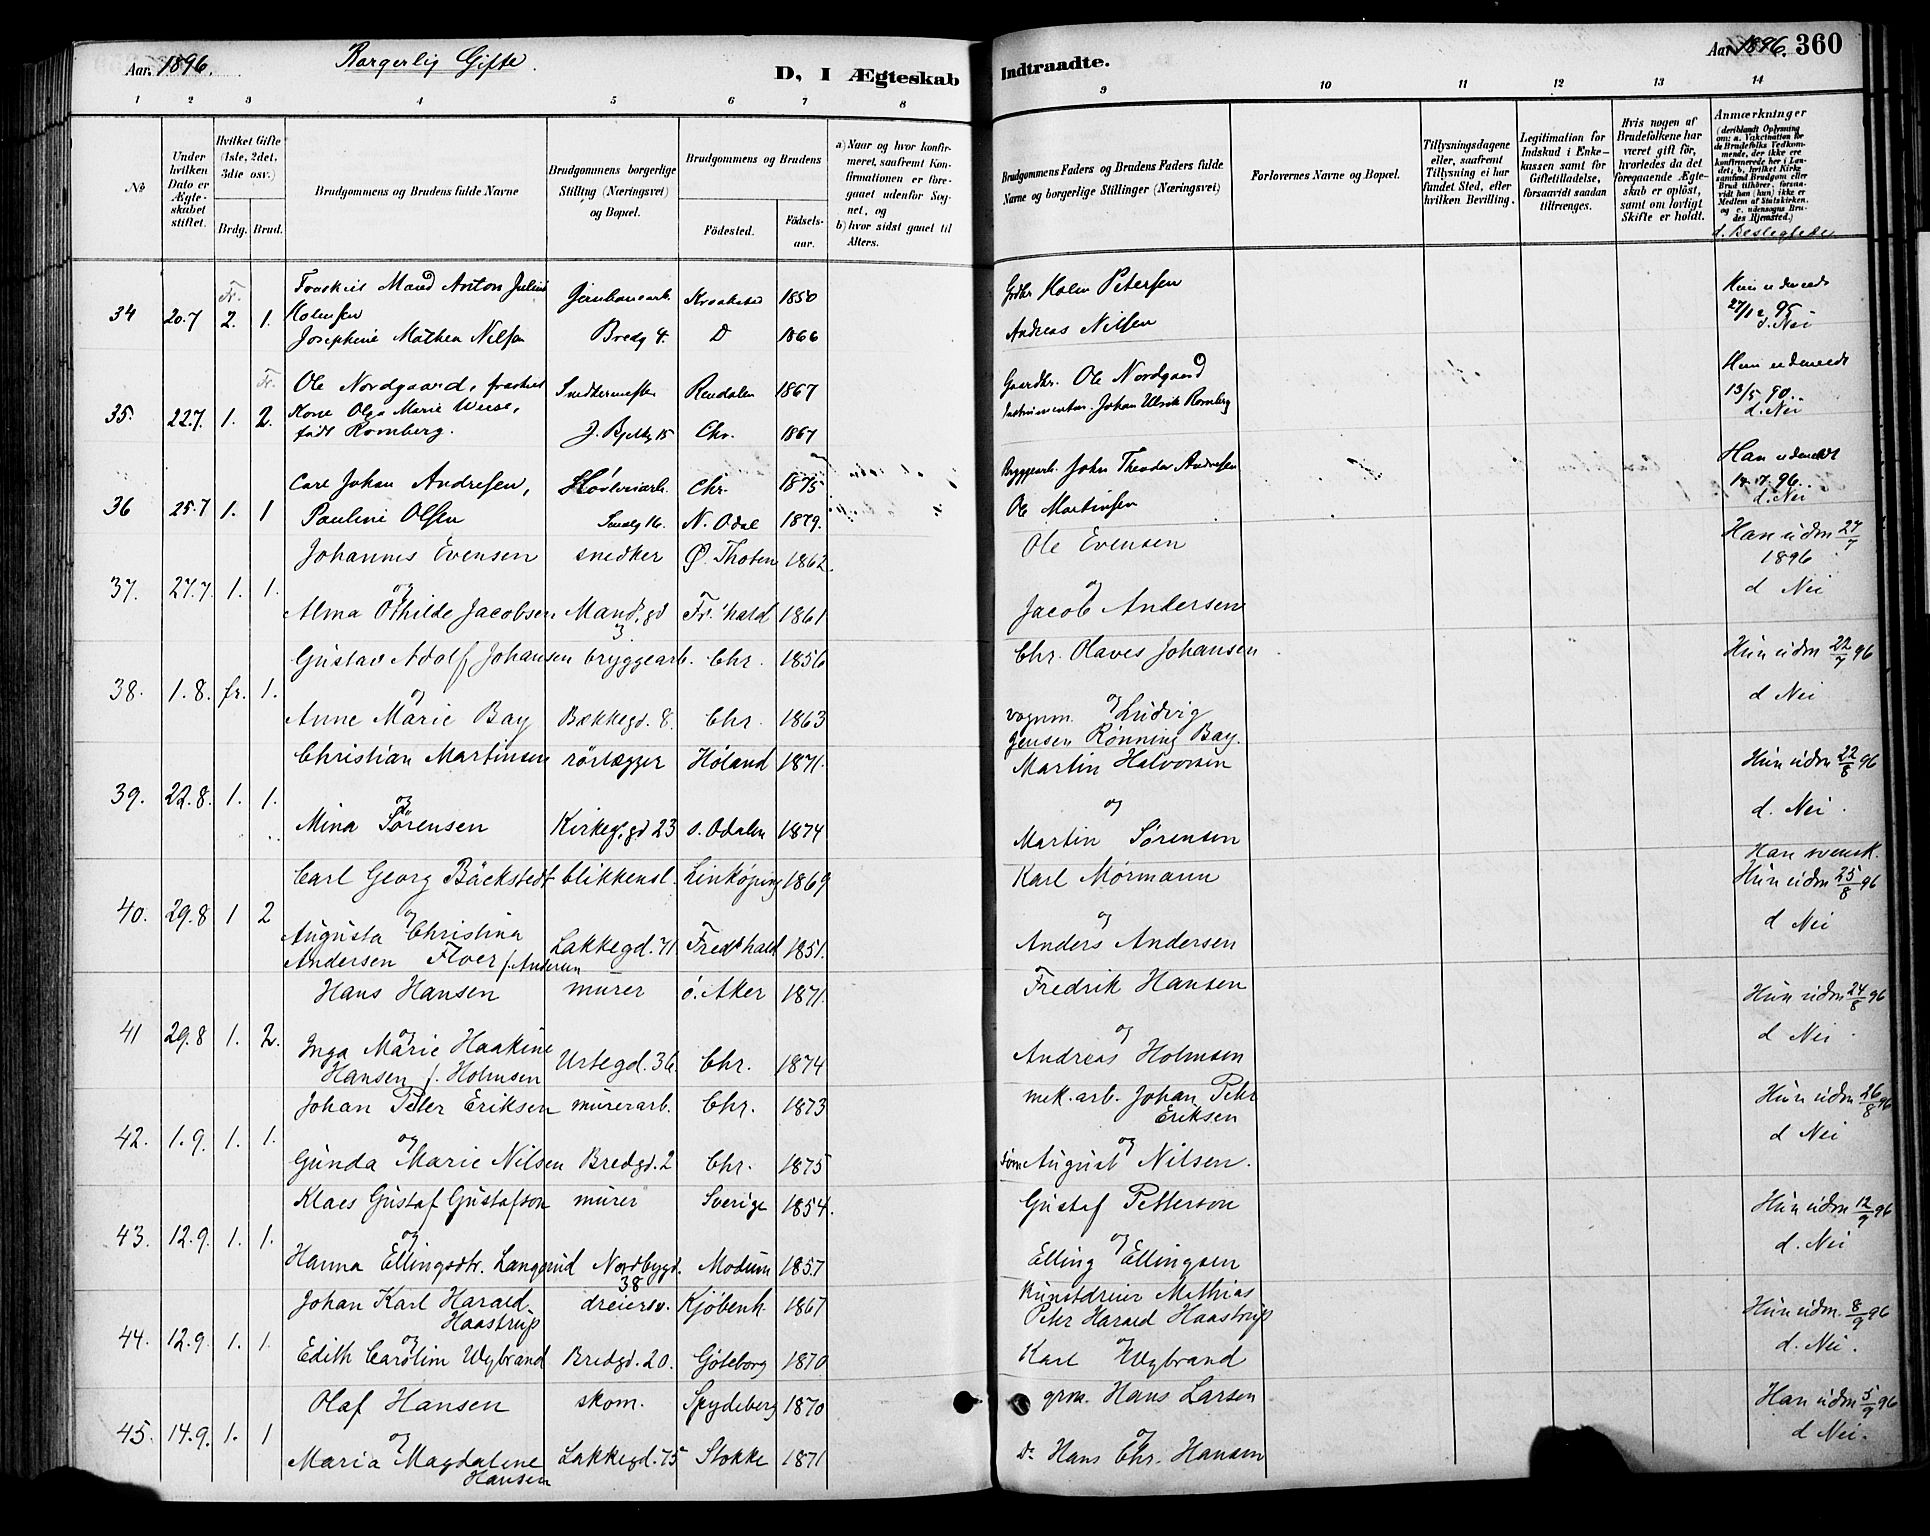 Aar. 1896. Borgerlig Gifte. D, I Ægteskab Indtraadte. Aar 1896. 360
1 2 3 4 5 6 7 8 9 10 11 12 13 14
No
Under hvilken Dato er Ægteskabet stiftet.
Hvilket Gifte (1ste, 2det, 3die osv.)
Brdg. Brud.
Brudgommens og Brudens fulde Navne
Brudgommens borgerlige Stilling (Næringsvei) og Bopæl.
Brudgommens og Brudens
Födested. Födsels-aar.
a) Naar og hvor konfirmeret, saafremt Konfirmationen er foregaaet udenfor Sognet, og
b) hvor sidst gaaet til Alters.
Brudgommens Faders og Brudens Faders fulde Navne og borgerlige Stillinger (Næringsvei)
Forlovernes Navne og Bopæl.
Tillysningsdagene eller, saafremt Tillysning ei har fundet Sted, efter hvilken Bevilling.
Legitimation for Indskud i Enkekassen samt for Giftetilladelse, forsaavidt saadan tiltrænges.
Hvis nogen af Brudefolkene har været gift för, hvorledes da det foregaaende Ægteskab er oplöst, samt om lovligt Skifte er holdt.
Anmærkninger
d. Beslegtede
34 20.7 Fr. 2. 1. Fraskilt Mand Anton Julius Jernbanearb. Kraakstad 1850 Holm Petersen Hun udmeldt
Holmsen 27/12 95
Josephine Mathea Nilsen Bredg 4. D 1866 Andreas Nilsen d. Nei
35. 22.7. 1. Fr. 2. Ole Nordgaard, fraskilt Snedkermester Rendalen 1867 Gaardbr. Ole Nordgaard Hun udmeldt
Kone Olga Marie Weise, Instrumentm. Johan Ulrik Romberg 13/5 90.
født Romberg. J. Bjelkg 15 Chr. 1867 d. Nei
36 25.7 1. 1 Carl Johan Andresen, Høvleriarb. Chr. 1875 Bryggearb. John Theodor Andresen Han udmeldt
17.7.96.
Pauline Olsen Smalg 16. N. Odal 1879. Ole Martinsen d. Nei
37. 27.7. 1. 1. Johannes Evensen snedker Ø. Thoten 1862. Ole Evensen Han udm 27/7
og og 1896
Alma Othilde Jacobsen Mand.gd 3 Fr.'hald 1861 Jacob Andersen d Nei
38. 1.8. fr. 1. Gustav Adolf Johansen bryggearb. Chr. 1856 Chr. Olaves Johansen Hun udm 22/7 96
og og
Anne Marie Bay Bækkegd. 8. Chr. 1863 vognm. Ludvig d Nei
Jensen Rønning Bay.
39. 22.8. 1. 1. Christian Martinsen rörlægger Höland 1871. Martin Halvorsen Hun udm 22/8 96
og og
Mina Sørensen Kirkeg.gd 23 s. Odalen 1874 Martin Sørensen d. Nei.
40. 29.8 1 2 Carl Georg Bäckstedt blikkensl. Linköping 1869 Karl Mörmann Han svensk.
Hun udm 25/8 96
og og
Augusta Christina Lakkegd. 71 Fredshald 1851. Anders Andersen d Nei
Andersen Floer f. Andersen
41 29.8 1. 2. Hans Hansen murer ö. Aker 1871. Fredrik Hansen Hun udm 24/8 96
og og
Inga Marie Haakine Urtegd. 36. Chr. 1874 Andreas Holmsen d Nei
Hansen f. Holmsen
42. 1.9. 1. 1. Johan Peter Eriksen murerarb. Chr. 1873 mek. arb. Johan Petr Eriksen Hun udm 26/8 96
og og
Gunda Marie Nilsen Bredgd. 2 Chr. 1875 August Nilsen. d Nei
43. 12.9. 1. 1. Klaes Gustaf Gustafson murer Sverige 1854. Gustaf Petterson Hun udm 12/9 96
og og
Hanna Ellingsdtr. Langerud Nordbygd. 38 Modum 1857 Elling Ellingsen d. Nei
44. 12.9. 1. 1. Johan Karl Harald Haastrup dreiersv. Kjöbenh. 1867 Kunstdreier Mathias Hun udm. 8/9 96
Peter Harald Haastrup
og og
Edith Carolim Wybrand Bredgd. 20. Göteborg 1870 Karl Wybrand d. Nei.
45. 14.9. 1. 1 Olaf Hansen skom. Spydeberg 1870 grm. Hans Larsen Han udm 5/9 96
og og
Maria Magdalene Hansen Lakkegd. 75 Stokke 1871 Do Hans Chr. Hansen d Nei.